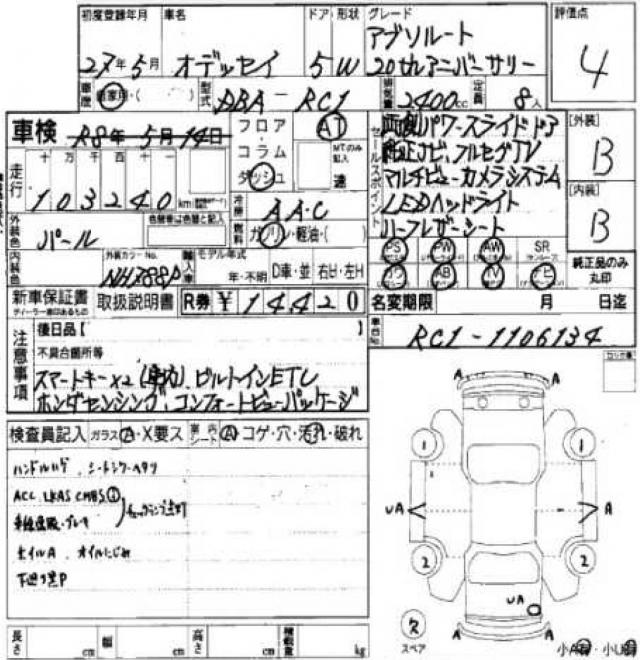 初度登録年月 車名 ドア 形状 グレード 評価点
27年5月 オデッセイ 5 W アブソルート
20thアニバーサリー
4
車歴 自家用・( ) 型式 DBA-RC1 排気量 2400cc 定員 8人
車検 R8年5月14日
フロア・コラム・ダッシュ AT
MTのみ記入 速
走行 十万千百十一
103240km
冷房 AAC
燃料 ガソリン・軽油・( )
外装色 パール 色替車は色替と記入
内装色 外装カラーNo. NH788P
輸入車 モデル年式 年・不明 D車・並 右H・左H
セールスポイント
両側パワースライドドア
純正ナビ、フルセグTV
マルチビューカメラシステム
LEDヘッドライト
ハーフレザーシート
[外装] B
[内装] B
PS PW AW SR
AB TV ナビ
純正品のみ丸印
新車保証書 取扱説明書 R券 ¥14420
ディーラー印あるもの
名変期限 月 日迄
注意事項
後日品【
不具合箇所等
スマートキー×2 ビルトインETC
ホンダセンシング、コンフォートビューパッケージ
車台No. RC1-1106134
検査員記入 ガラス A・X要ス A・コゲ・穴・汚れ・破れ
ハンドルハゲ、シートシワ・ヘタリ
ACC LKAS CMBS
オイルにじみ
A
1 1
UA A
2 2
UA
A A
スペア
長さ cm 幅 cm 高さ cm 積載量 kg